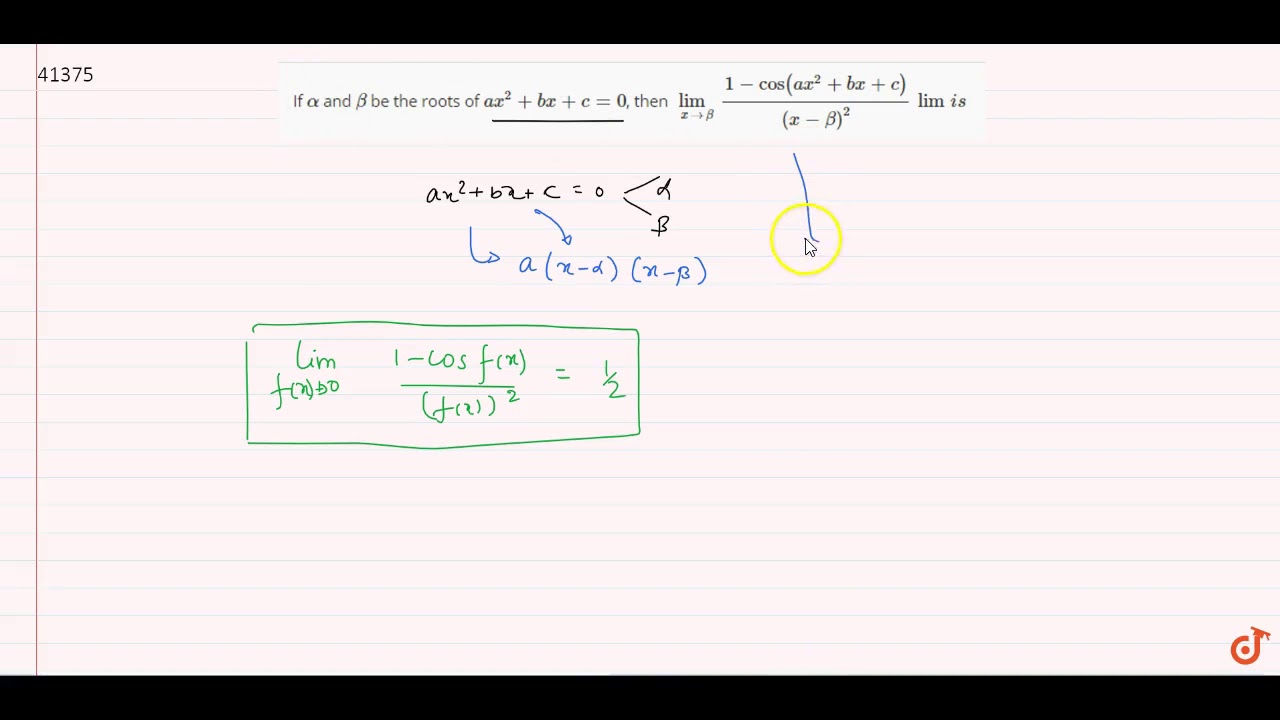 41375
If α and β be the roots of ax² + bx + c = 0, then lim x→β (1 − cos(ax² + bx + c)) / (x − β)² lim is
ax² + bx + c = 0 < α β
a (x-α) (x-β)
lim f(x)→0 (1-cos f(x)) / (f(x))² = 1/2